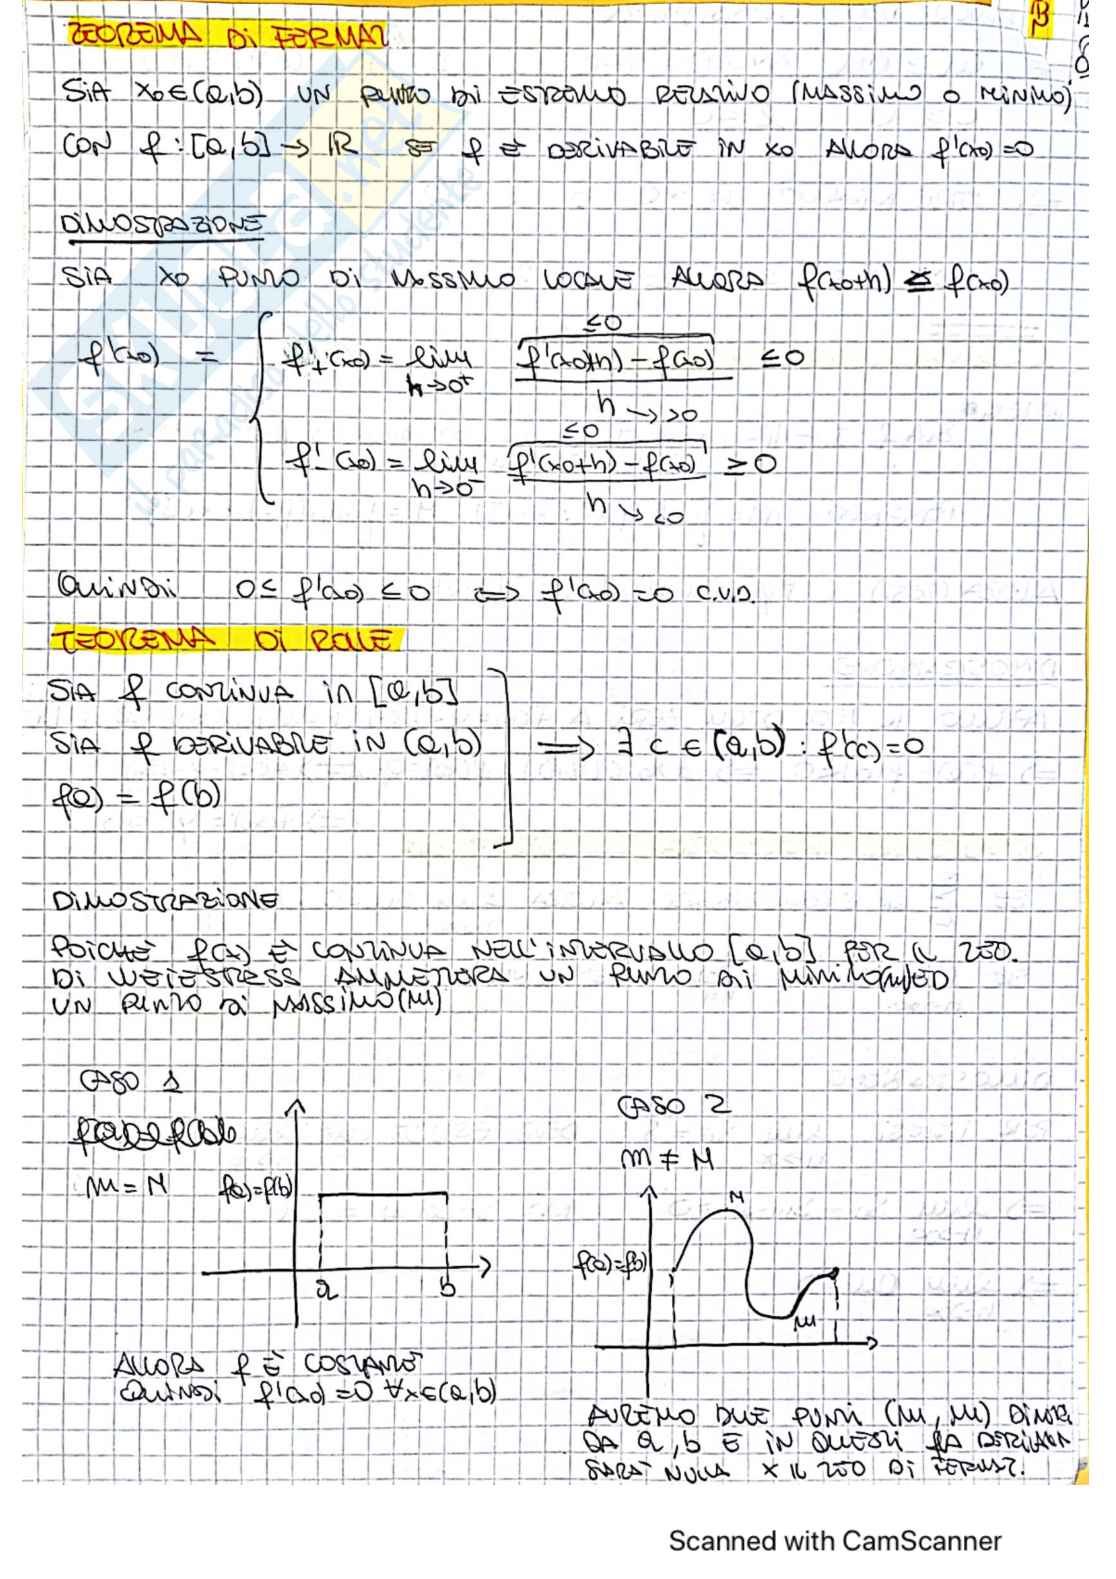 TEOREMA Di FERMAT
SiA x0 ∈ (a,b) UN PUNTO Di ESTREMO RELATIVO (MASSIMO O MiNiMO)
CON f : [a,b] → IR SE f È DERIVABILE IN x0 ALLORA f'(x0) = 0
DiMOSTRAZIONE
SiA x0 PUNTO Di MASSIMO LOCALE ALLORA f(x0+h) ≤ f(x0)
≤0
f'(x0) = { f'+(x0) = lim h→0+ f'(x0+h) - f(x0) / h → >0 ≤ 0
≤0
f'-(x0) = lim h→0- f'(x0+h) - f(x0) / h ↘ <0 ≥ 0
QuiNDi 0 ≤ f'(x0) ≤ 0 ⟺ f'(x0) = 0 C.V.D.
TEOREMA Di ROLLE
SiA f CONTINUA in [a,b]
SiA f DERiVABILE iN (a,b) ⟹ ∃ c ∈ (a,b) : f'(c) = 0
f(a) = f(b)
DiMOSTRAZiONE
POICHÈ f(x) È CONTINUA NELL'iNTERVALLO [a,b] PER IL TEO.
Di WEIESTRESS AMMETTERA UN PUNTO Di MiNiMO(m) ED
UN PUNTO Di MASSiMO (M)
CASO 1
m = M
f(a)=f(b)
a b
ALLORA f È COSTANTE
QUiNDi f'(x0) = 0 ∀x∈(a,b)
CASO 2
m ≠ M
M
f(a)=f(b)
m
AVREMO DUE PUNTi (M, m) DiVERSi
DA a,b E IN QUESTi LA DERIVATA
SARA' NULLA X IL TEO Di FERMAT.
Scanned with CamScanner